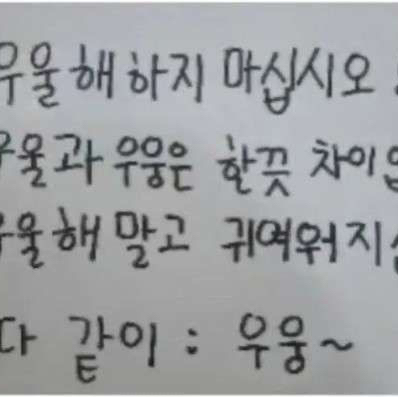 우울해하지 마십시오
우울과 우웅은 한끗 차이
우울해 말고 귀여워지
다 같이 : 우웅~